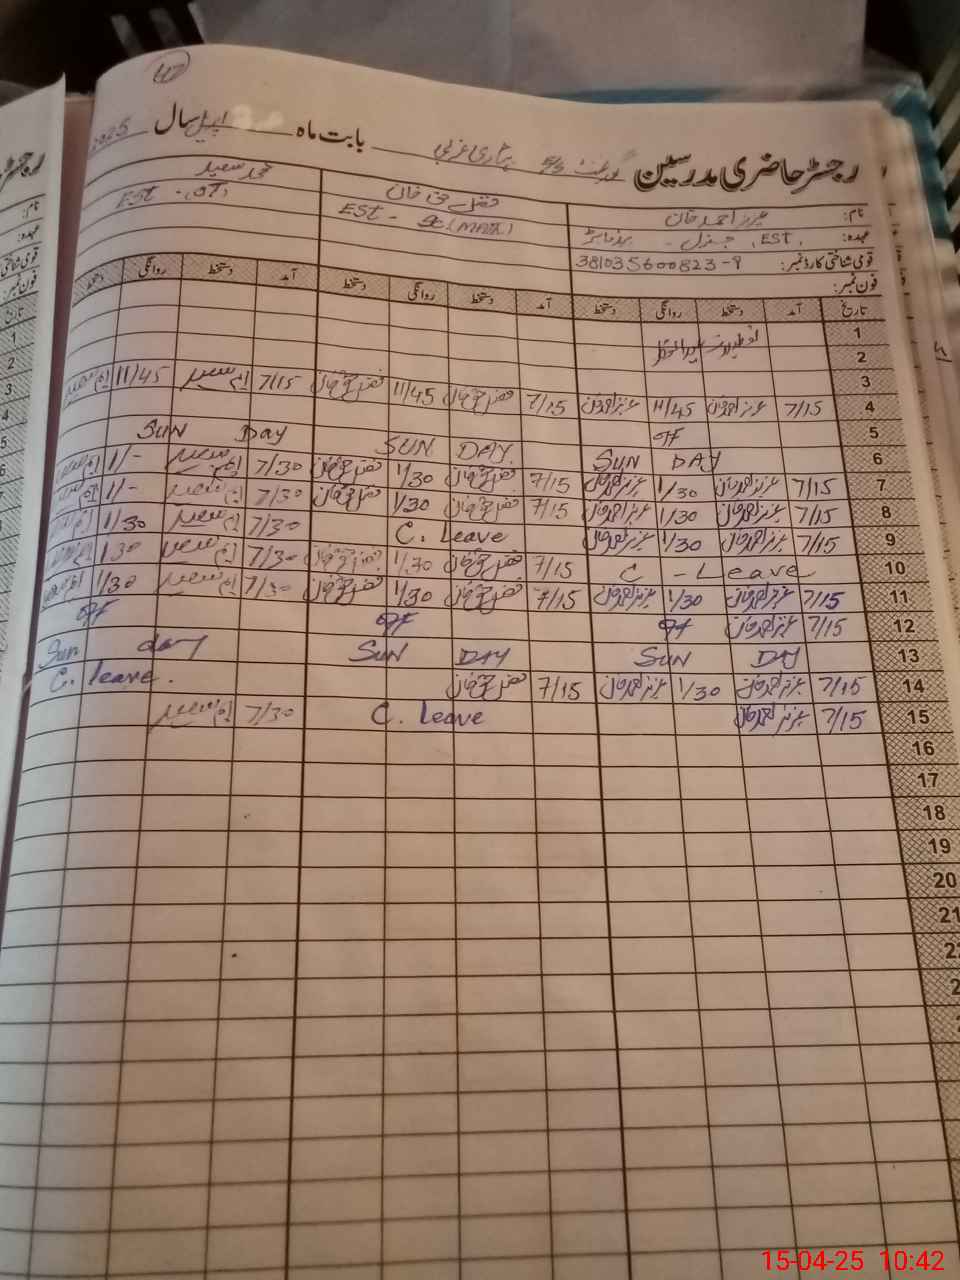 47
رجسٹر حاضری مدرسین گورنمنٹ بابت ماہ اپریل سال 2025
نام: عزیز احمد خان فضل حق خان محمد سعید
عہدہ: EST. جنرل EST - SC (MATH) EST -
قومی شناختی کارڈ نمبر: 381035600823-9
فون نمبر:
تاریخ آمد دستخط روانگی دستخط آمد دستخط روانگی دستخط آمد دستخط روانگی دستخط
1 عیدالفطر
2
3
4 7/15 عزیز احمد خان 11/45 عزیز احمد خان 7/15 فضل حق خان 11/45 فضل حق خان 7/15 ایم سعید 11/45 ایم سعید
5 off
6 SUN DAY SUN DAY SUN Day
7 7/15 عزیز احمد خان 1/30 عزیز احمد خان 7/15 فضل حق خان 1/30 فضل حق خان 7/30 ایم سعید 1/- ایم سعید
8 7/15 عزیز احمد خان 1/30 عزیز احمد خان 7/15 فضل حق خان 1/30 فضل حق خان 7/30 ایم سعید 1/- ایم سعید
9 7/15 عزیز احمد خان 1/30 عزیز احمد خان C. Leave 7/30 ایم سعید 1/30 ایم سعید
10 C - Leave 7/15 فضل حق خان 1/30 فضل حق خان 7/30 ایم سعید 1/30 ایم سعید
11 7/15 عزیز احمد خان 1/30 عزیز احمد خان 7/15 فضل حق خان 1/30 فضل حق خان 7/30 ایم سعید 1/30 ایم سعید
12 7/15 عزیز احمد خان off off off
13 SUN DAY SUN DAY Sun day
14 7/15 عزیز احمد خان 1/30 عزیز احمد خان 7/15 فضل حق خان C. leave.
15 7/15 عزیز احمد خان C. Leave 7/30 ایم سعید
16
17
18
19
20
21
15-04-25 10:42